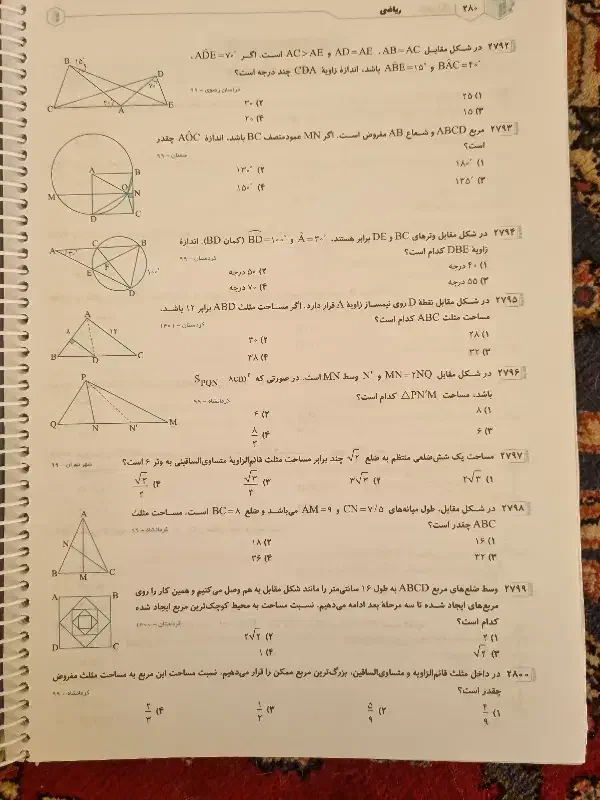 ۲۸۰ ریاضی
۲۷۹۲ در شکل مقابل AB=AC، AD=AE و AC>AE است. اگر ADE=۷۰°،
BAC=۴۰° و ABE=۱۵° باشد، اندازهٔ زاویهٔ CDA چند درجه است؟
خراسان رضوی - ۹۹
۱) ۲۵ ۲) ۳۰
۳) ۱۵ ۴) ۲۰
B ۱۵° D ۷۰° C A E
۲۷۹۳ مربع ABCD و شعاع AB مفروض است. اگر MN عمودمنصف BC باشد، اندازهٔ AOC چقدر
است؟
سمنان - ۹۹
۱) ۱۸۰° ۲) ۱۳۰°
۳) ۱۳۵° ۴) ۱۵۰°
A B M O N D C
۲۷۹۴ در شکل مقابل وترهای BC و DE برابر هستند. A=۳۰° و BD=۱۰۰° (کمان BD). اندازهٔ
زاویهٔ DBE کدام است؟
کردستان - ۹۹
۱) ۴۰ درجه ۲) ۵۰ درجه
۳) ۵۵ درجه ۴) ۷۰ درجه
A C B E F D ۱۰۰°
۲۷۹۵ در شکل مقابل نقطهٔ D روی نیمساز زاویهٔ A قرار دارد. اگر مساحت مثلث ABD برابر ۱۲ باشد،
مساحت مثلث ABC کدام است؟
کردستان - ۱۴۰۱
۱) ۲۸ ۲) ۳۰
۳) ۳۲ ۴) ۳۸
A ۸ ۱۲ B D C
۲۷۹۶ در شکل مقابل MN=۲NQ و N' وسط MN است. در صورتی که S PQN ۸cm²
باشد، مساحت △PN'M کدام است؟
کرمانشاه - ۹۹
۱) ۸ ۲) ۶
P Q N N' M
۲۷۹۷ مساحت یک شش‌ضلعی منتظم به ضلع √۲ چند برابر مساحت مثلث قائم‌الزاویهٔ متساوی‌الساقینی به وتر ۶ است؟
شهر تهران - ۹۹
۱) ۲√۳ ۲) ۳√۳
۲۷۹۸ در شکل مقابل، طول میانه‌های CN=۷/۵ و AM=۹ می‌باشد و ضلع BC=۸ است، مساحت مثلث
ABC چقدر است؟
کرمانشاه - ۹۹
۱) ۱۶ ۲) ۱۸
۳) ۳۲ ۴) ۳۶
A N B M C
۲۷۹۹ وسط ضلع‌های مربع ABCD به طول ۱۶ سانتی‌متر را مانند شکل مقابل به هم وصل می‌کنیم و همین کار را روی
مربع‌های ایجاد شده تا سه مرحلهٔ بعد ادامه می‌دهیم. نسبت مساحت به محیط کوچک‌ترین مربع ایجاد شده
کدام است؟
۱) ۲ ۲) ۲√۲
۳) √۲ ۴) ۱
A B D C
۲۸۰۰ در داخل مثلث قائم‌الزاویه و متساوی‌الساقین، بزرگ‌ترین مربع ممکن را قرار می‌دهیم. نسبت مساحت این مربع به مساحت مثلث مفروض
چقدر است؟
کرمانشاه - ۹۹
۱) ۴/۹ ۲) ۵/۹ ۳) ۱/۲ ۴) ۲/۳